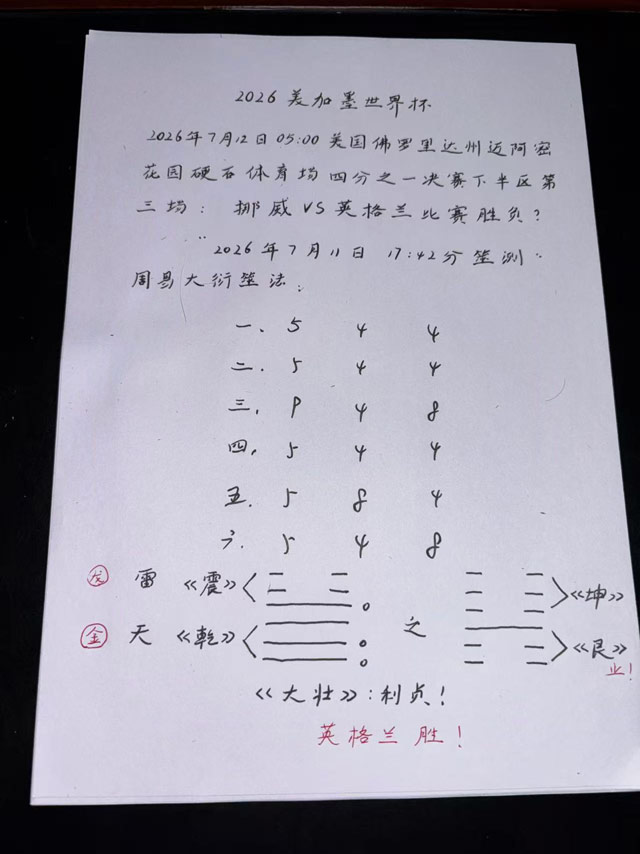 2026美加墨世界杯
2026年7月12日05:00美国佛罗里达州迈阿密
花园硬石体育场四分之一决赛下半区第
三场:挪威VS英格兰比赛胜负?
2026年7月11日 17:42分筮测
周易大衍筮法:
一、5 4 4
二、5 4 4
三、9 4 8
四、5 4 4
五、5 8 4
六、5 4 8
雷《震》 《坤》
之
金 天《乾》 《艮》
业!
《大壮》:利贞!
英格兰胜!